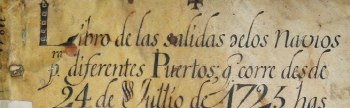 Libro de las salidas delos Navios
pra diferentes Puertos; q corre desde
24 de Jullio de 1723 has